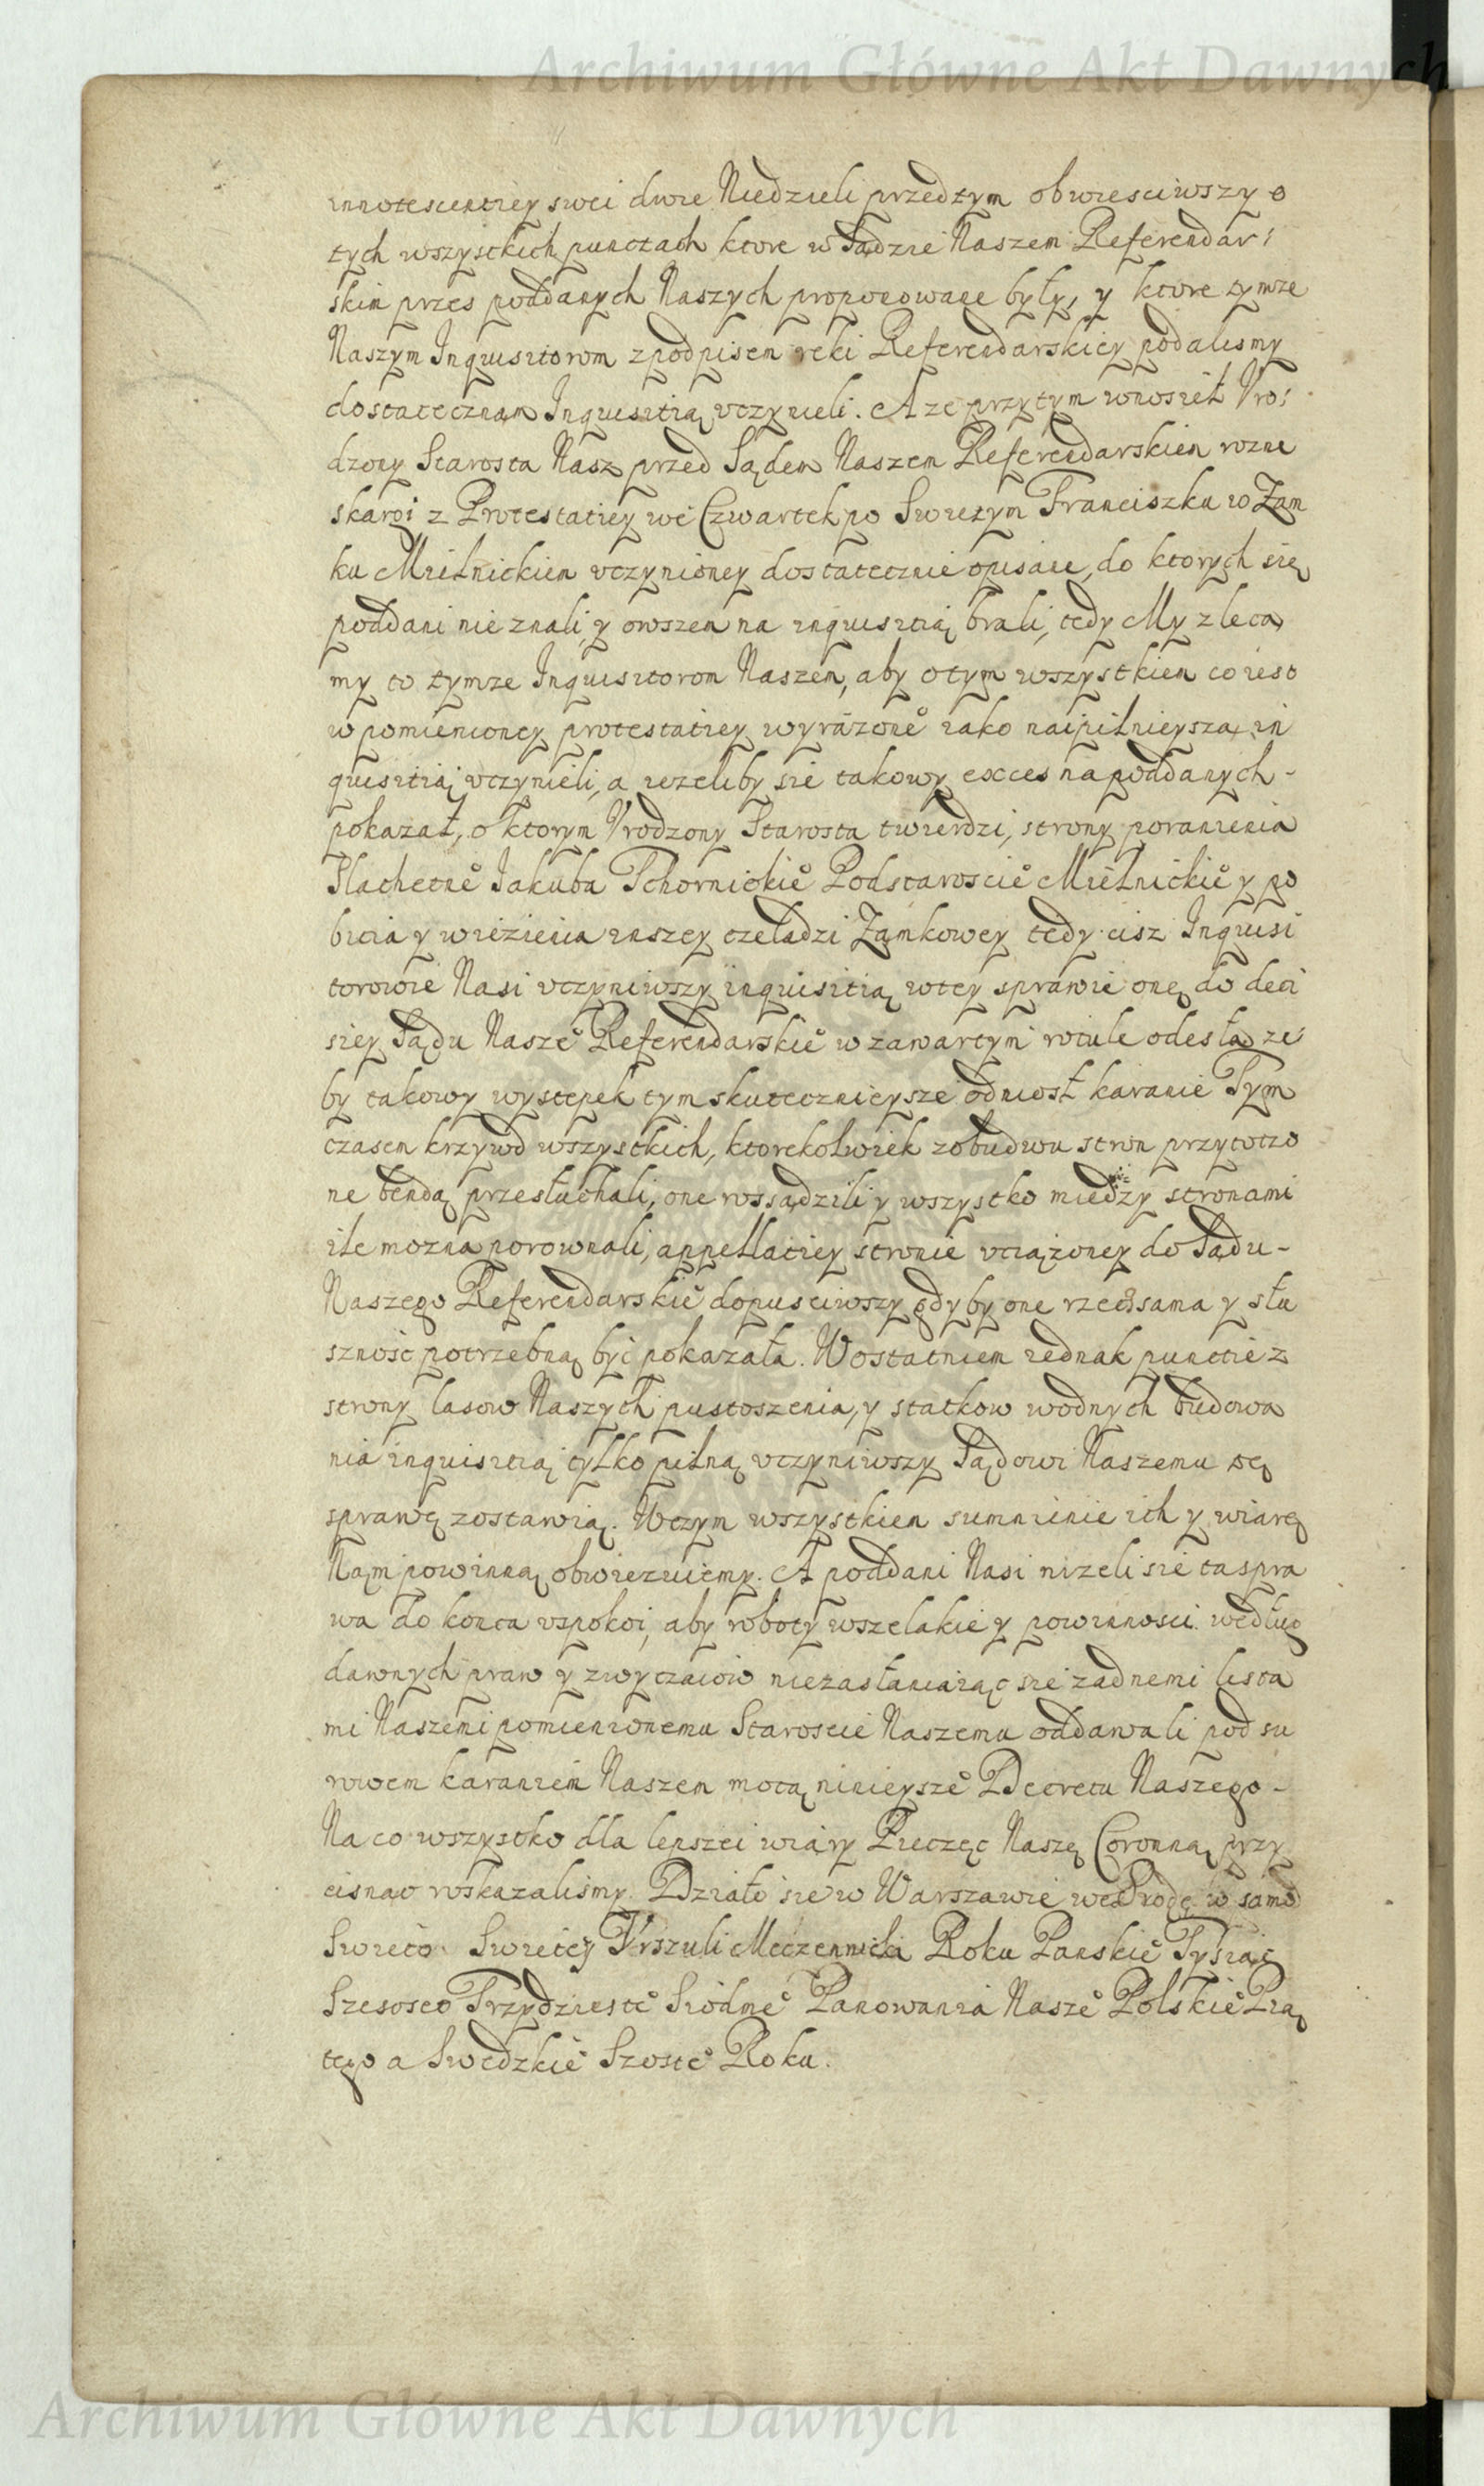 Archiwum Główne Akt Dawnych
innotescentiey swei dwie Niedzieli przedtym obwiesciwszy o
tych wszystkich punctach ktore w Sądzie Naszem Referendar:
skim przes poddanych Naszych proponowane były, y ktore tymze
Naszym Inquisitorom z podpisem reki Referendarskiey podalismy
dostateczną Inquisitią vczynieli. A ze przytym wnosieł Vro:
dzony Starosta Nasz przed Sądem Naszem Referendarskiem rozne
skargi z Protestatiey we Czwartek po Swietym Franciszku w Zam
ku Mielnickiem vczynioney dostatecznie opisane, do ktorych się
poddani nie znali, y owszem na inquisitią brali, tedy My zleca
my to tymze Inquisitorom Naszem, aby o tym wszystkiem co iest
w pomienioney protestatiey wyrazone̊ iako naipilnieyszą in
quisitią vczynieli, a iezeliby sie takowy exces na poddanych -
pokazał, o ktorym Vrodzony Starosta twierdzi, strony poranienia
Slachetne̊ Jakuba Tchornickie̊ Podstaroscie̊ Mielnickie̊ y po
bicia y wiezienia inszey czeladzi Zamkowey tedy cisz Inquisi
torowie Nasi vczyniwszy inquisitią w tey sprawie onę do deci
siey Sądu Nasze̊ Referendarskie̊ w zawartym rotule odesłą ze
by takowy wystepek tym skutecznieysze odniosł karanie Tym
czasem krzywd wszystkich, ktorekolwiek z obudwu stron przytoczo
ne bendą przesłuchali, one rossądzili y wszystko miedzy stronami
ile mozna porownali, appellatiey stronie vciążoney do Sądu -
Naszego Referendarskie̊ dopusciwszy gdyby one rzecz sama y słu
sznosc potrzebną być pokazała. W ostatniem iednak punctie z
strony lasow Naszych pustoszenia, y statkow wodnych budowa
nia inquisitią tylko pilną vczyniwszy Sądowi Naszemu tę
sprawę zostawią. W czym wszystkiem sumnienie ich y wiarę
Nam powinną obwiezuiemy. A poddani Nasi nizeli sie ta spra
wa do konca vspokoi, aby roboty wszelakie y powinnosci według
dawnych praw y zwyczaiow niezasłaniaiąc sie zadnemi lista
mi Naszemi pomienionemu Staroscie Naszemu oddawali pod su
rowem karaniem Naszem mocą ninieysze̊ Decretu Naszego -
Na co wszystko dla lepszei wiary Pieczęc Naszę Coronną przy
cisnąc roskazalismy. Działo sie w Warszawie we Srodę w samo
Swieto Swietey Vrszuli Meczennicki Roku Panskie̊ Tysiąc
Szesoset Trzydzieste̊ Siodme̊ Panowania Nasze̊ Polskie̊ Pią
tego a Swedzkie̊ Szoste̊ Roku.
Archiwum Główne Akt Dawnych